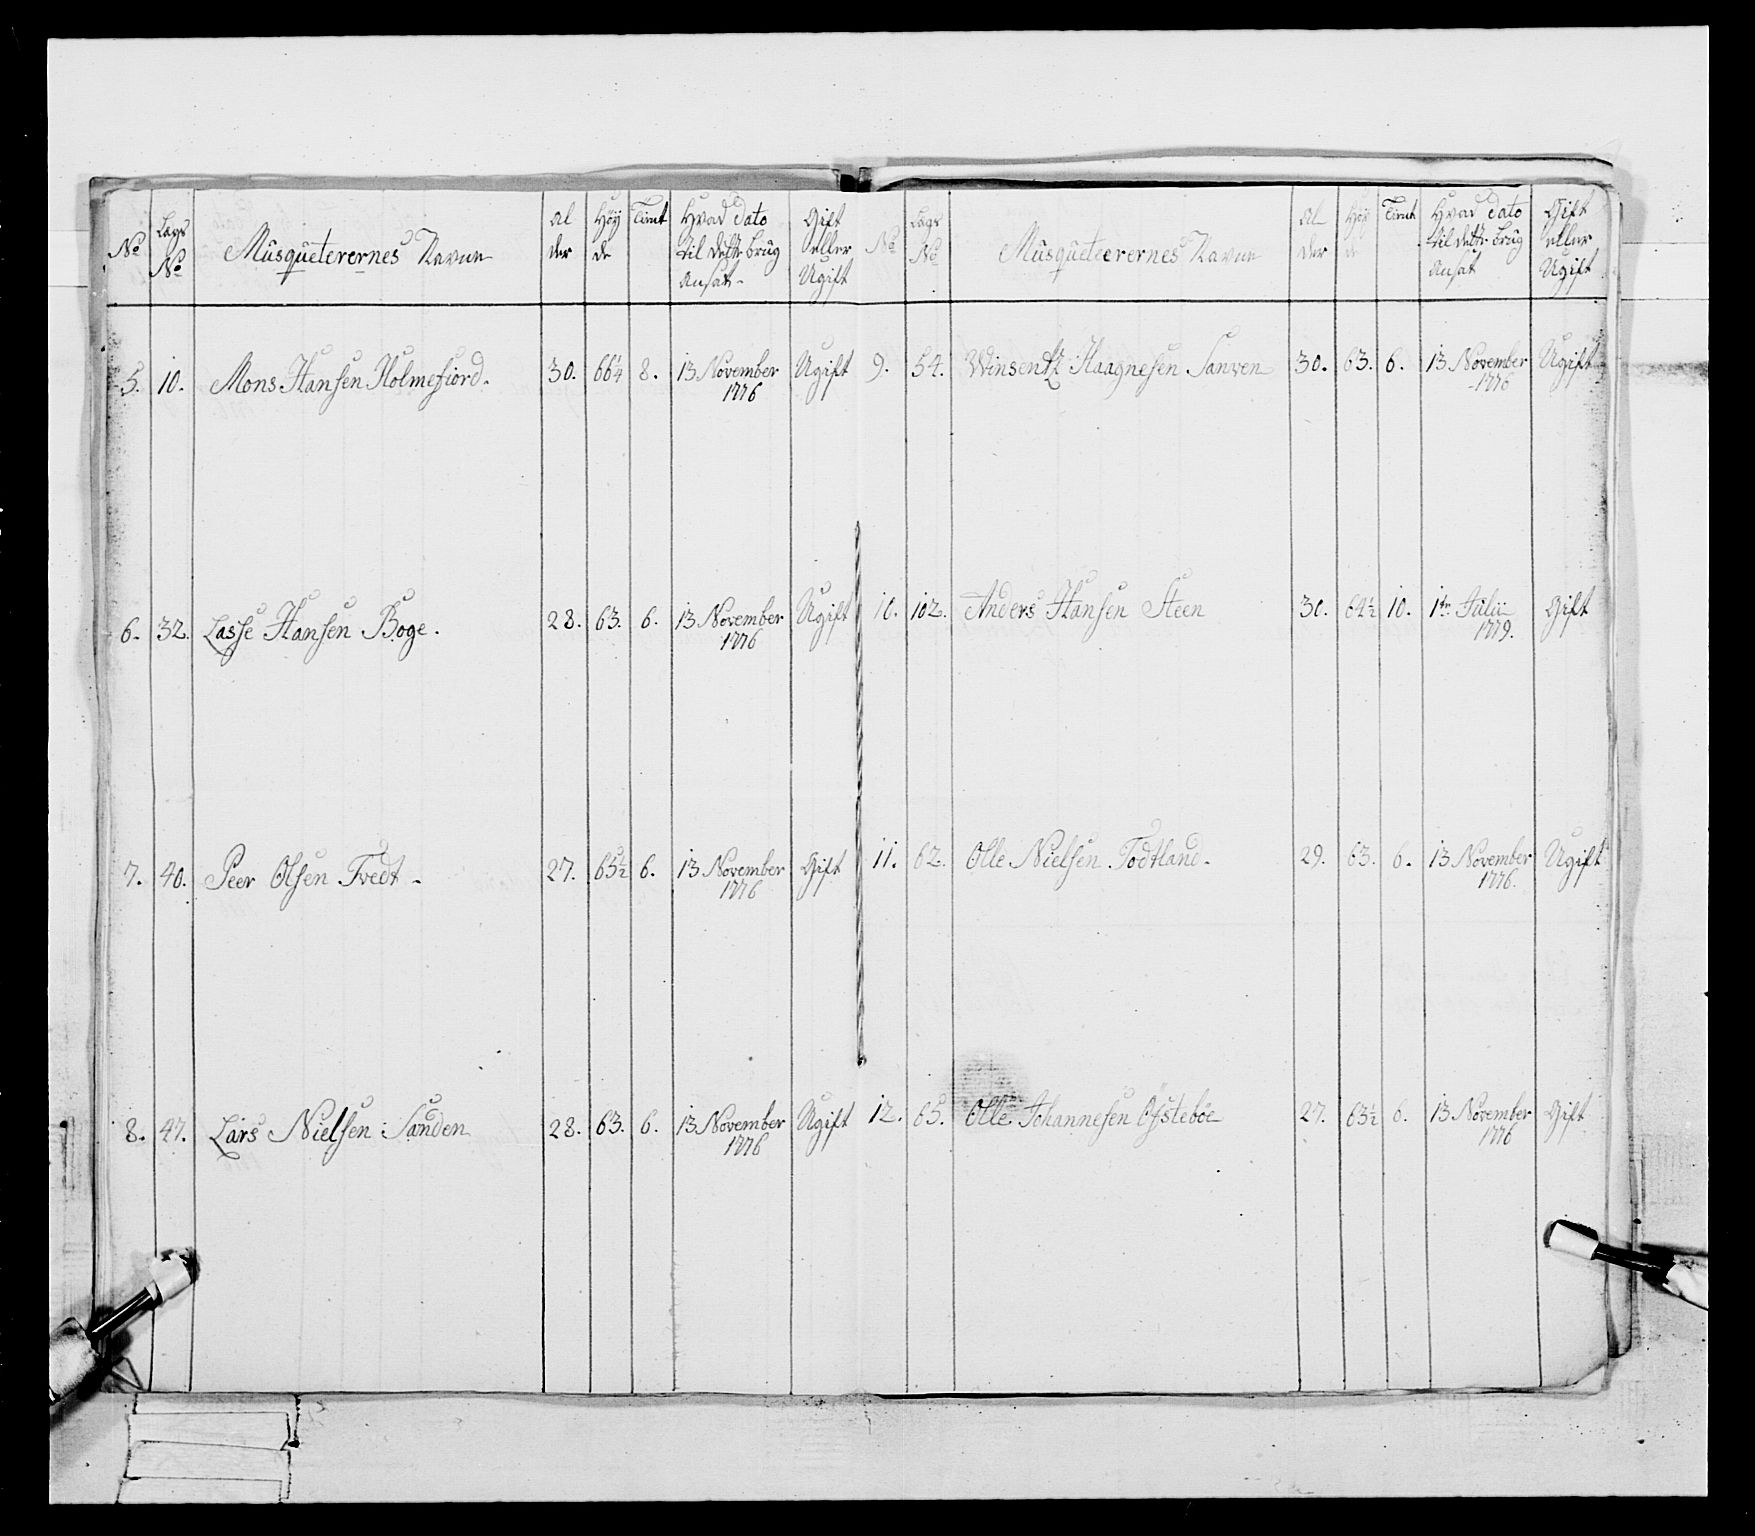 No | Lægs No | Musqueterernes Navne | Al der | Høy de | Tient | Hvad Dato til dette brug Ansat | Gift eller Ugift
5. | 10. | Mons Hansen Holmefiord. | 30. | 66¼ | 8. | 13 November 1776 | Ugift
6. | 32. | Lasse Hansen Boge. | 28. | 63. | 6. | 13 November 1776 | Ugift
7. | 40. | Peer Olsen Tvedt. | 27. | 65½ | 6. | 13 November 1776 | Gift
8. | 47. | Lars Nielsen Sanden | 28. | 63. | 6. | 13 November 1776 | Ugift
No | Lægs No | Musqueteerernes Navne | Al der | Høy de | Tient | Hvad Dato til dette brug Ansat | Gift eller Ugift
9. | 54. | Winsentz Haagnesen Sanven | 30. | 63. | 6. | 13 November 1776 | Ugift
10. | 102. | Anders Hansen Steen | 30. | 64½ | 10. | 1te Julii 1779. | Gift
11. | 62. | Olle Nielsen Todtland. | 29. | 63. | 6. | 13 November 1776. | Ugift
12. | 65. | Olle Johannesen Øfstebøe | 27. | 63½ | 6. | 13 November 1776 | Gift